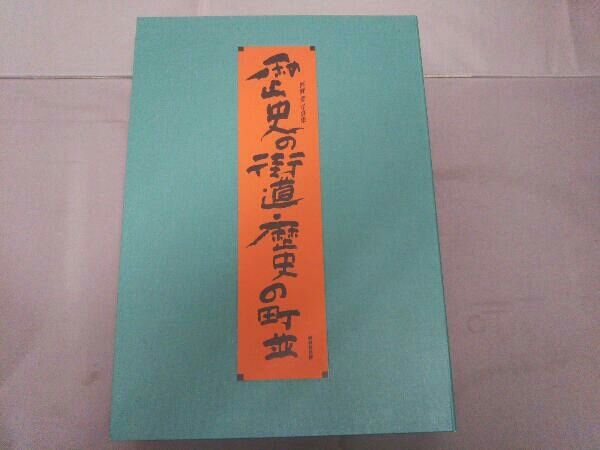 歴史の街道・歴史の町並